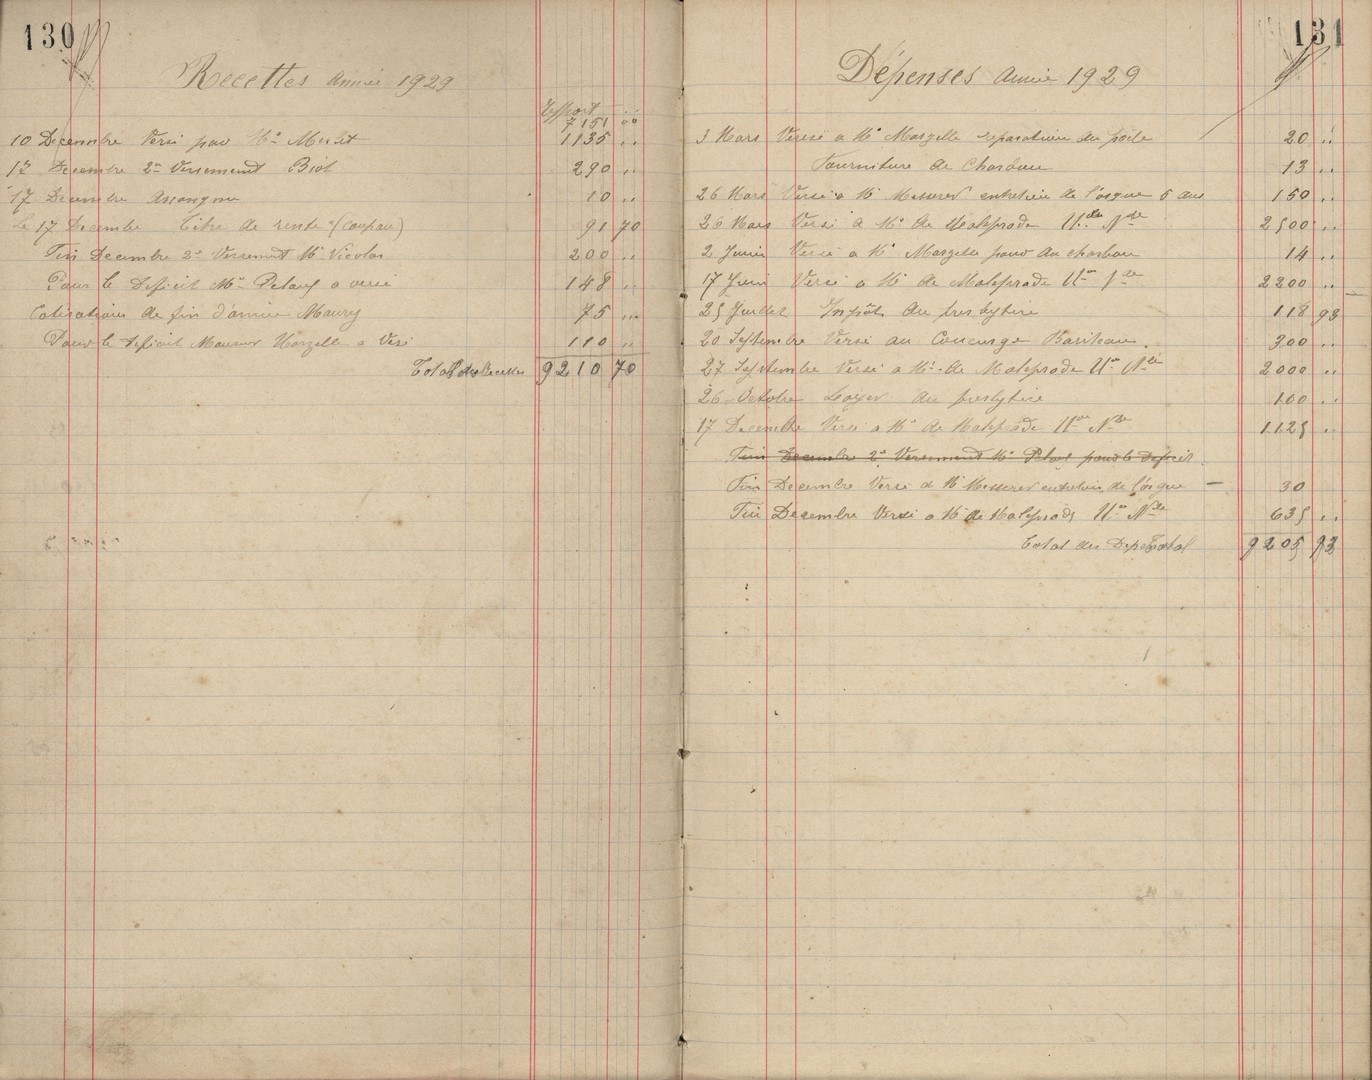 130
Recettes Année 1929
Report
7151 00
10 Decembre Versé par Mr Merlet 1135 ..
12 Decembre 2e Versement Biot 290 ..
17 Decembre Anonyme 10 ..
Le 17 Decembre Titre de rente (coupon) 91 70
Fin Decembre 2e Versement Mr Nicolas 200 ..
Pour le Deficit Mr a versé 148 ..
Cotisations de fin d'année Maury 75 ..
Pour le Deficit Monsieur Marzelle a Versé 110 ..
Total des Recettes 9210 70
131
Dépenses Année 1929
3 Mars Versé a Mr Marzelle reparation du poële 20 ..
Fourniture de Charbon 13 ..
26 Mars Versé a Mr Messerer entretien de l'orgue 5 ans 150 ..
26 Mars Versé a Mr de Maleprade Uon Nle 2500 ..
2 Juin Versé a Mr Marzelle pour du charbon 14 ..
17 Juin Versé a Mr de Maleprade Uon Nle 2200 ..
25 Juillet Impôts du presbytère 118 93
20 Septembre Versé au Concierge 300 ..
27 Septembre Versé a Mr de Maleprade Uon Nle 2000 ..
26 Octobre Loyer du presbytère 100 ..
17 Decembre Versé a Mr de Maleprade Uon Nle 1125 ..
Fin Decembre 2e Versement Mr pour le Deficit
Fin Decembre Versé a Mr Messerer entretien de l'orgue — 30
Fin Decembre Versé a Mr de Maleprade Uon Nle 635 ..
Total des Depenses Total 9205 93